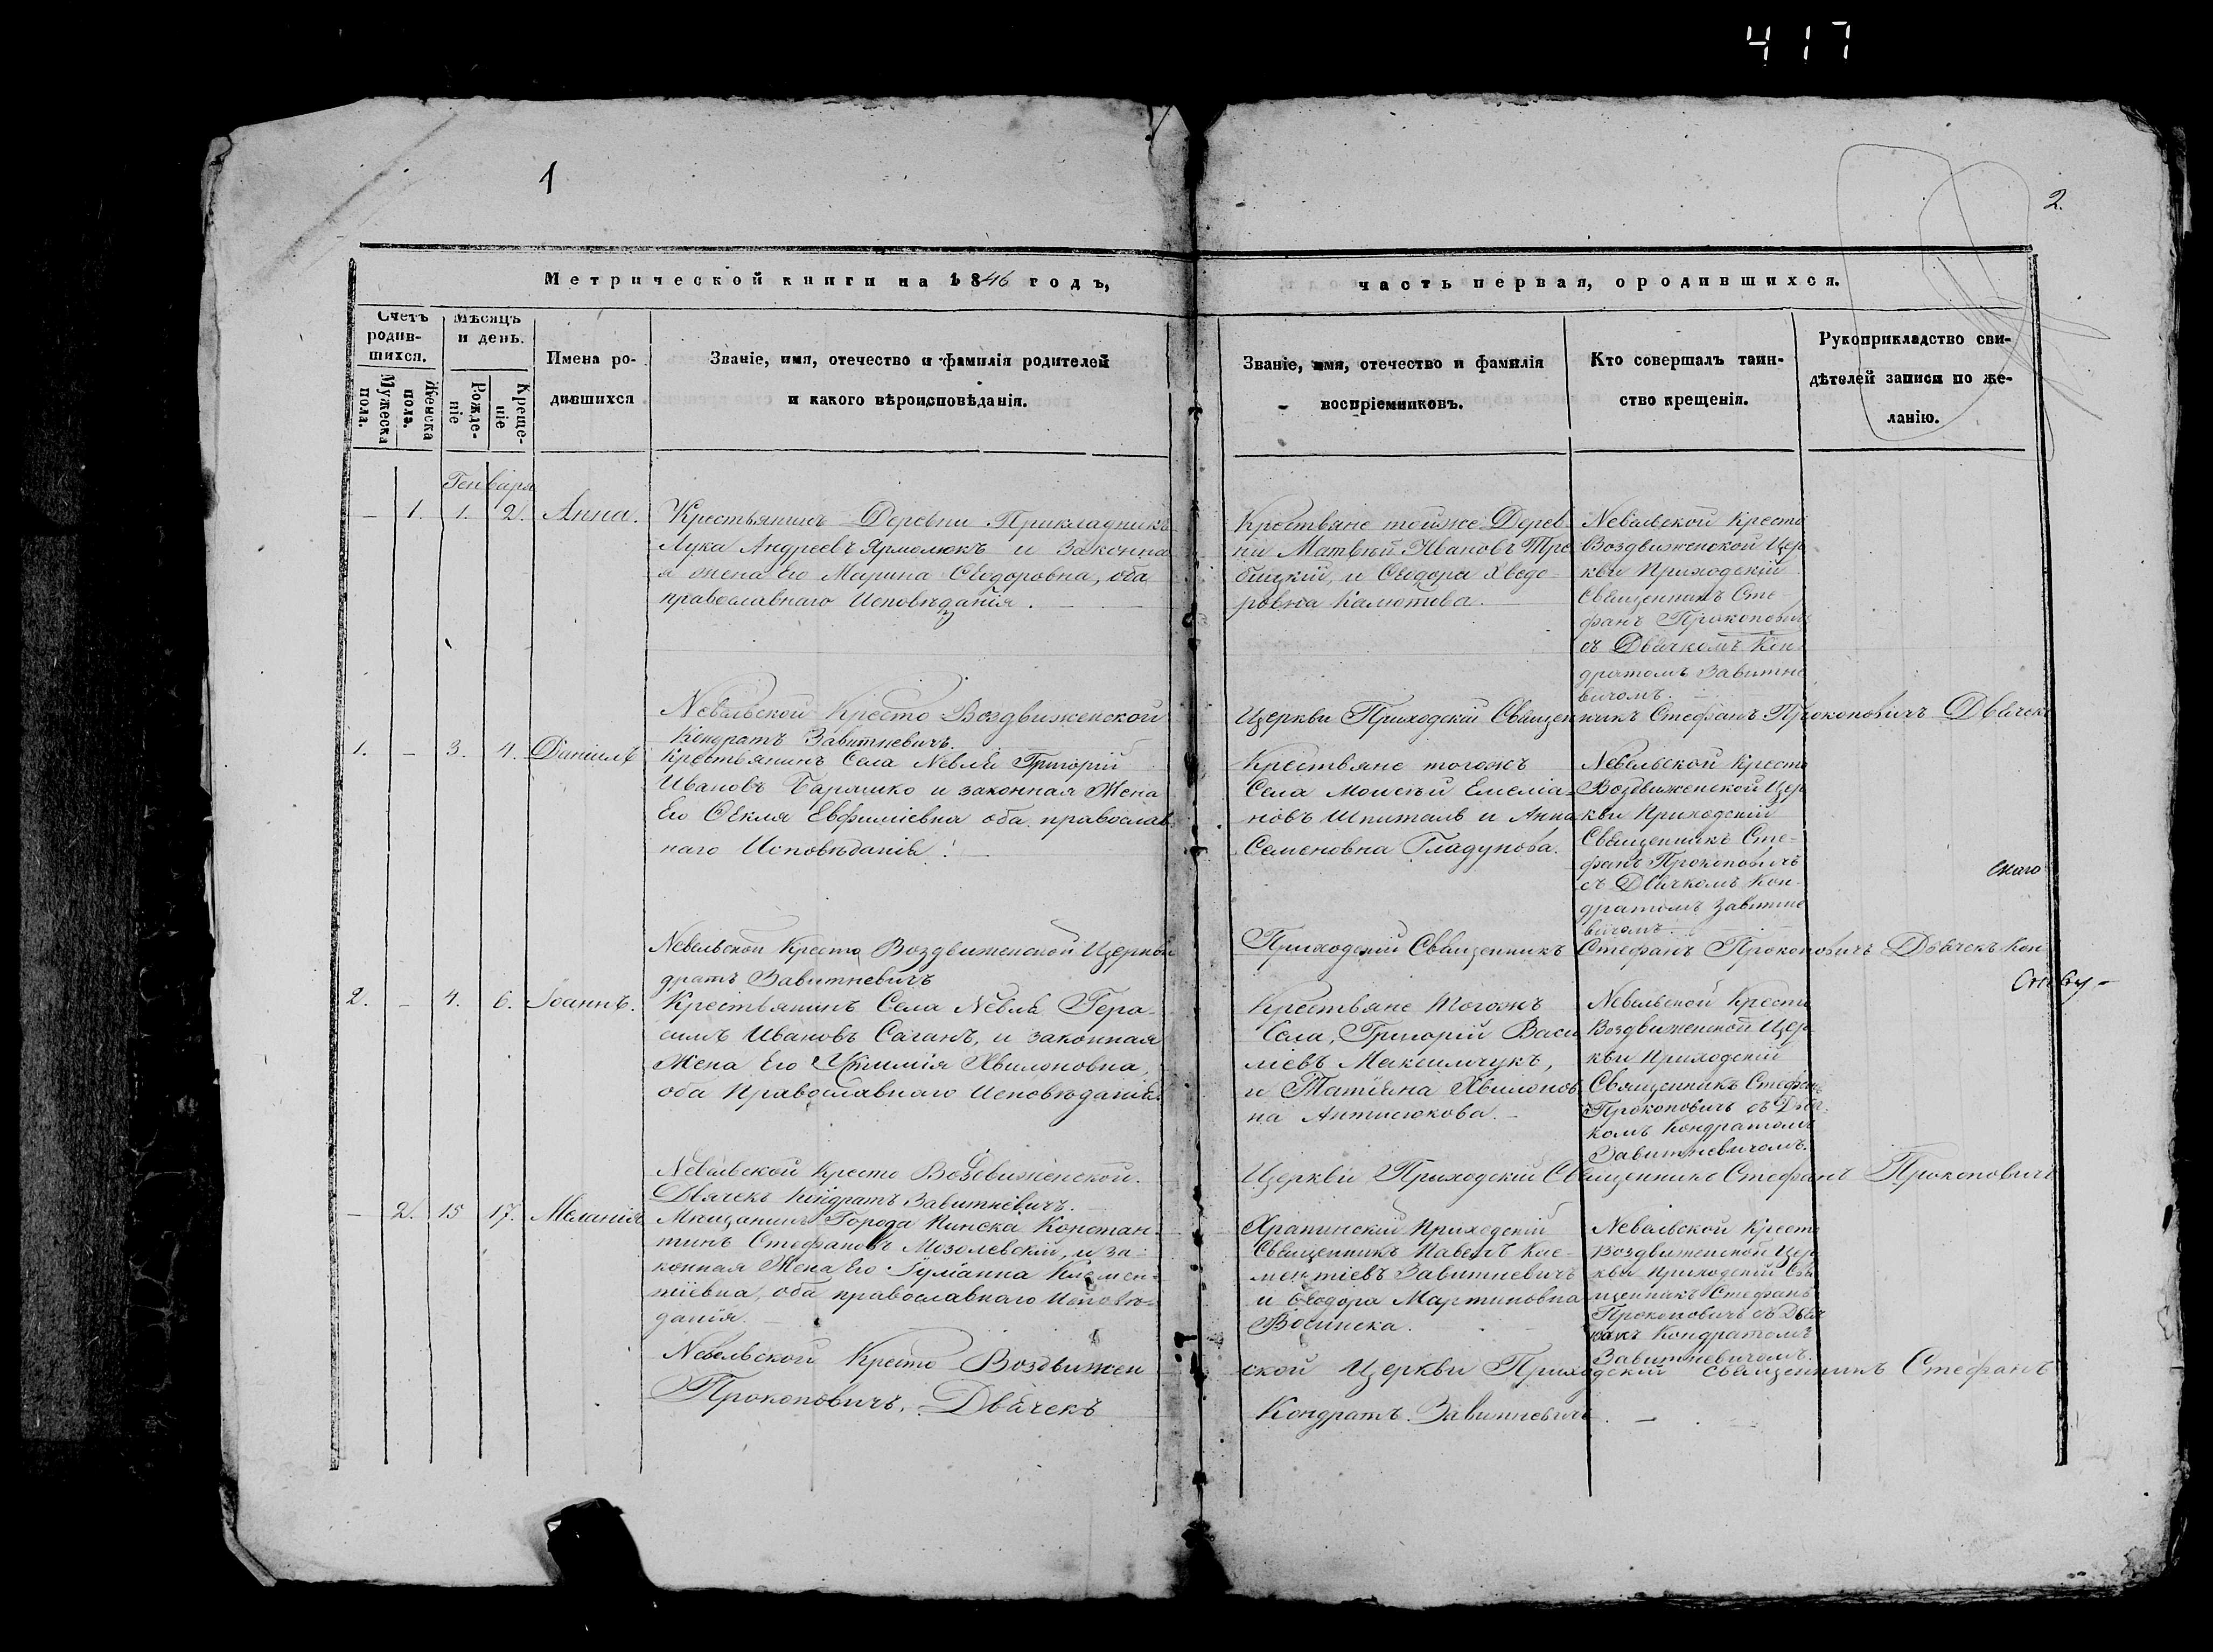 417
1
2.
Метрической книги на 1846 годъ,
часть первая, ородившихся.
Счетъ родив-шихся.
Мѣсяцъ и день.
Имена ро-
дившихся
Званіе, имя, отечество и фамилія родителей
и какого вѣроисповѣданія.
Мужеска пола.
Женска пола.
Рожде-ніе
Креще-ніе
Званіе, имя, отечество и фамилія
воспріемниковъ.
Кто совершалъ таин-
ство крещенія.
Рукоприкладство сви-
дѣтелей записи по же-
ланію.
Генваря
— 1. 1. 2. Анна.
Крестьянинъ Деревни Прикладникъ
Лука Андреевъ Ярмолюкъ и Законна
я жена его Марина Ѳеодоровна, оба
православнаго Исповѣданія.
Крестьяне тойже Дерев
ни Матвѣй Ивановъ Тре
бицкій, и Ѳеодора Хведо
ровна
Невельской Кресто
Воздвиженской Цер
кви Приходскій
Священникъ Сте-
фанъ Прокопович
съ Дьячкомъ Кон
дратомъ Завитне
вичомъ.
Невельской Кресто Воздвиженской
Церкви Приходскій Священникъ Стефанъ Прокоповичъ Дьячекъ
Кондратъ Завитневичъ.
1. — 3. 4. Даніилъ
Крестьянинъ Села Невля Григорій
Ивановъ Баряшко и законная Жена
Его Ѳекля Евфиміевна оба православ
наго Исповѣданія.
Крестьяне тогожъ
Села Моисѣй Емеліа-
новъ Шпиталь и Анна
Семеновна Гладунова.
Невельской Кресто
Воздвиженской Цер
кви Приходскій
Священникъ Сте-
фанъ Прокоповичъ
съ Дьячкомъ Кон-
дратомъ Завитне
вичомъ.
Невельской Кресто Воздвиженской Церкви
Приходскій Священникъ Стефанъ Прокоповичъ Дьячекъ Кон
дратъ Завитневичъ
2. — 4. 6. Іоаннъ.
Крестьянинъ Села Невля Гера-
симъ Ивановъ Саганъ, и законная
Жена Его Хвилоновна,
оба Православнаго Исповѣданія
Крестьяне Тогожъ
Села, Григорій Васи
ліевъ Максимчукъ,
и Татіяна Хвилонов
на Антисюкова.
Невельской Кресто
Воздвиженской Цер
кви Приходскій
Священникъ Стефанъ
Прокоповичъ съ Дьяч-
комъ Кондратомъ
Завитневичомъ.
Невельской Кресто Воздвиженской.
Церкви Приходскій Священникъ Стефанъ Прокоповичъ
Дьячекъ Кондратъ Завитневичъ.
— 2. 15 17. Меланія
Мѣщанинъ Города Пинска Констан-
тинъ Стефановъ Мозолевскій, и за-
конная Жена Его Іуліанна Клемен-
тіевна, оба православнаго Исповѣ-
данія.
Храпинскій Приходскій
Священникъ Павелъ Кле-
ментіевъ Завитневичъ
и Ѳеодора Мартиновна
Невельской Крест
Воздвиженской Цер
кви Приходскій Свя
щенникъ Стефанъ
Прокоповичъ съ Дья
Кондратомъ
Завитневичомъ.
Невельской Кресто Воздвижен
ской Церкви Приходскій Священникъ Стефанъ
Прокоповичъ. Дьячекъ
Кондратъ Завитневичъ.